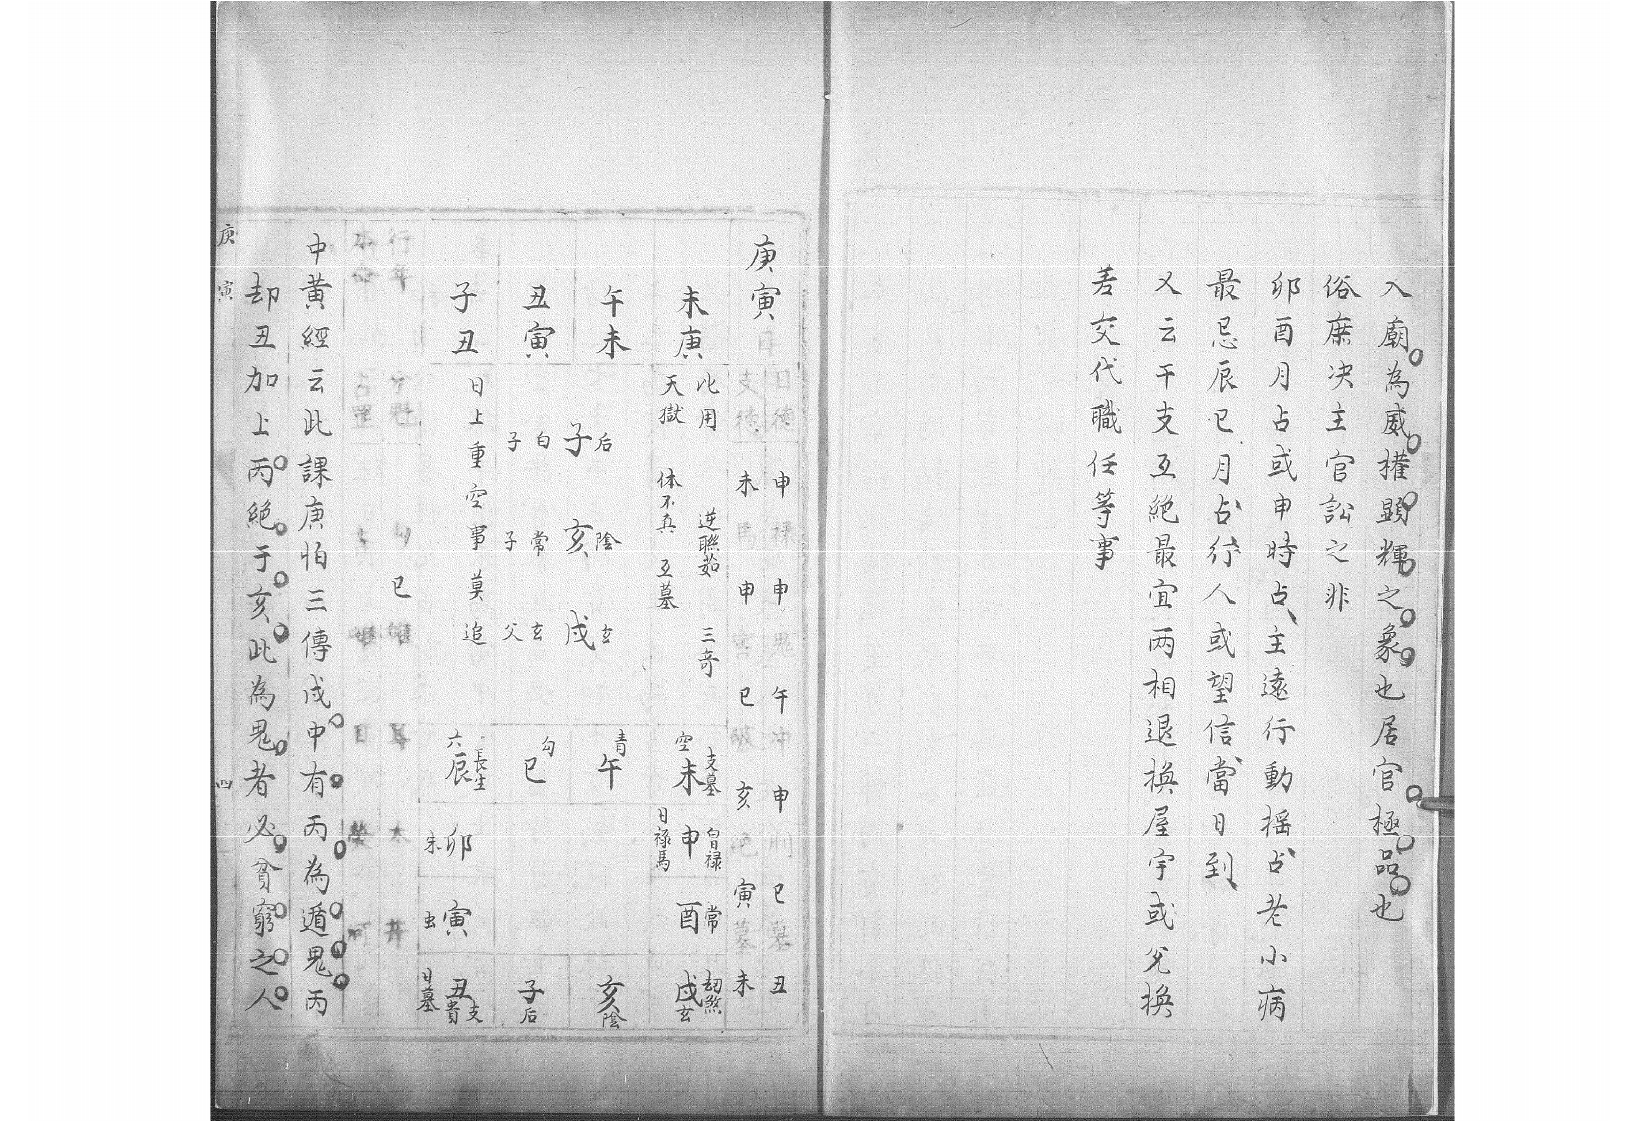 入廟為威權顯輝之象也居官極品也
俗庶决主官訟之非
卯酉月占或申時占主遠行動搖占老小病
最忌辰巳月占行人或望信當日到
又云干支互絕最宜兩相退換屋宇或兌換
差交代職任等事
庚寅
日德 申 祿 申 鬼 午 冲 申 刑 巳 墓 丑
支德 未 馬 申 害 巳 破 亥 絶 寅 墓 未
未庚
午未
丑寅
子丑
此用 逆聯茹 三奇
天獄 体不真 互墓
后 子 白 子
陰 亥 常 子
玄 戌 玄 父
日上重空事莫追
空 未 支墓
青 午
勾 巳
六 辰 長生
日祿馬 申 白日祿
朱 卯
常 酉
虫 寅
劫煞 戌 玄
亥 陰
子 后
日墓 丑 貴 支
行年
巳
本命
中黃經云此課庚怕三傳戌中有丙為遁鬼丙
却丑加上丙絕于亥此為鬼者必貧窮之人
庚寅 四